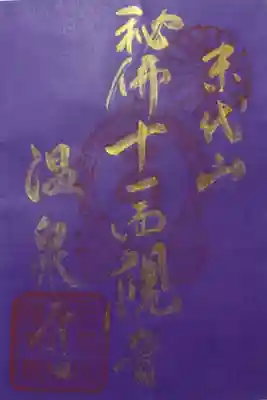 末代山
祕佛十一面観音
温泉寺